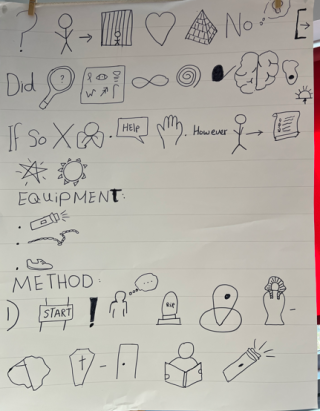 ? No
Did ?
If So X HELP . However
EQUIPMENT:
METHOD:
1) START ! RIP -
-